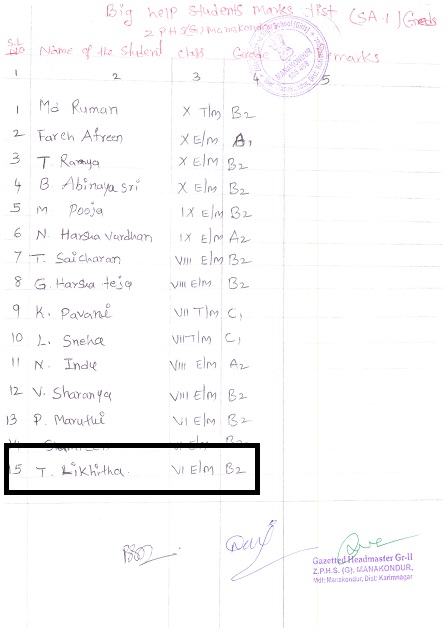 Big help students marks list (SA-1) Grads
Z P H S (G) Manakondur
S.L No Name of the Student class Grade Remarks
1 2 3 4 5
1 Md Ruman X T/m B2
2 Fareh Afreen X E/m A1
3 T. Ramya X E/m B2
4 B. Abinaya sri X E/m B2
5 M Pooja IX E/m B2
6 N. Harsha vardhan IX E/m A2
7 T. Saicharan VIII E/m B2
8 G. Harsha teja VIII E/m B2
9 K. Pavani VII T/m C1
10 L. Sneha VII T/m C1
11 N. Indu VIII E/m A2
12 V. Sharanya VIII E/m B2
13 P. Maruthi VI E/m B2
14 VI E/m B2
15 T. Likhitha. VI E/m B2
Gazetted Headmaster Gr-II
Z.P.H.S. (G). MANAKONDUR,
Mdl: Manakondur, Dist: Karimnagar